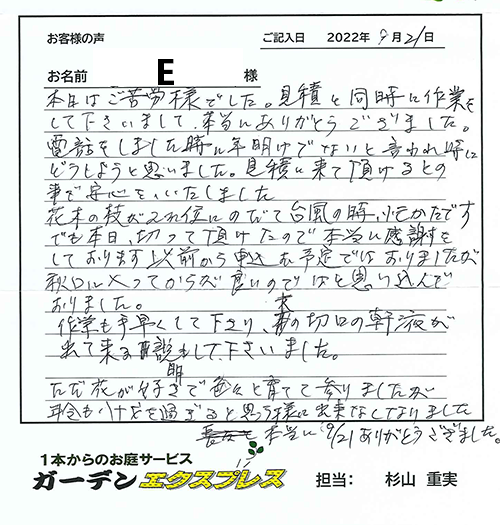 お客様の声
ご記入日 2022年 9月21日
お名前 E 様
本日はご苦労様でした。見積と同時に作業を
して下さいまして、本当にありがとうございました。
電話をしました時に年明けでないと言われ時に
どうしようと思いました。見積に来て頂けるとの
事で安心をいたしました
花木の枝が入れ位にのびて台風の時、心ぱいです
でも本日、切って頂けたので本当に感謝を
しております 以前から申込む予定ではおりましたが
秋口に入ってからが良いのではと思い込んで
おりました。
作業も手早くして下さり、木の切口の樹液が
出て来る説明もして下さいました。
ただ花が好きで色々と育てて参りましたが
年令も を過ぎると思う様に出来なくなりました
本当に 9/21 ありがとうございました。
1本からのお庭サービス
ガーデンエクスプレス 担当: 杉山 重実